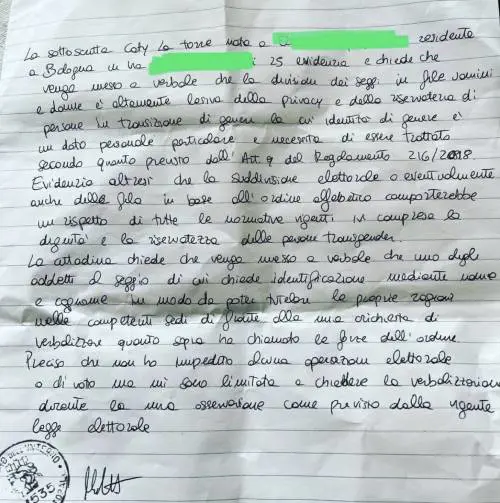 La sottoscritta Caty La torre nata a residente
a Bologna in via 25 evidenzia e chiede che
venga messo a verbale che la divisione dei seggi in file uomini
e donne è altamente lesiva della privacy e della riservatezza di
persone in transizione di genere la cui identità di genere è
un dato personale particolare e necessita di essere trattato
secondo quanto previsto dall'Art. 9 del Regolamento 216/2018.
Evidenzia altresì che la suddivisione elettorale o eventualmente
anche della fila in base all'ordine alfabetico comporterebbe
un rispetto di tutte le normative vigenti ivi compresa la
dignità e la riservatezza delle persone transgender.
La cittadina chiede che venga messo a verbale che uno degli
addetti al seggio di cui chiede identificazione mediante nome
e cognome in modo da poter tutelare le proprie ragioni
nelle competenti sedi di fronte alla mia richiesta di
verbalizzare quanto sopra ha chiamato le forze dell'ordine.
Preciso che non ho impedito alcuna operazione elettorale
o di voto ma mi sono limitata a chiedere la verbalizzazione
durante la mia osservazione come previsto dalla vigente
legge elettorale
535